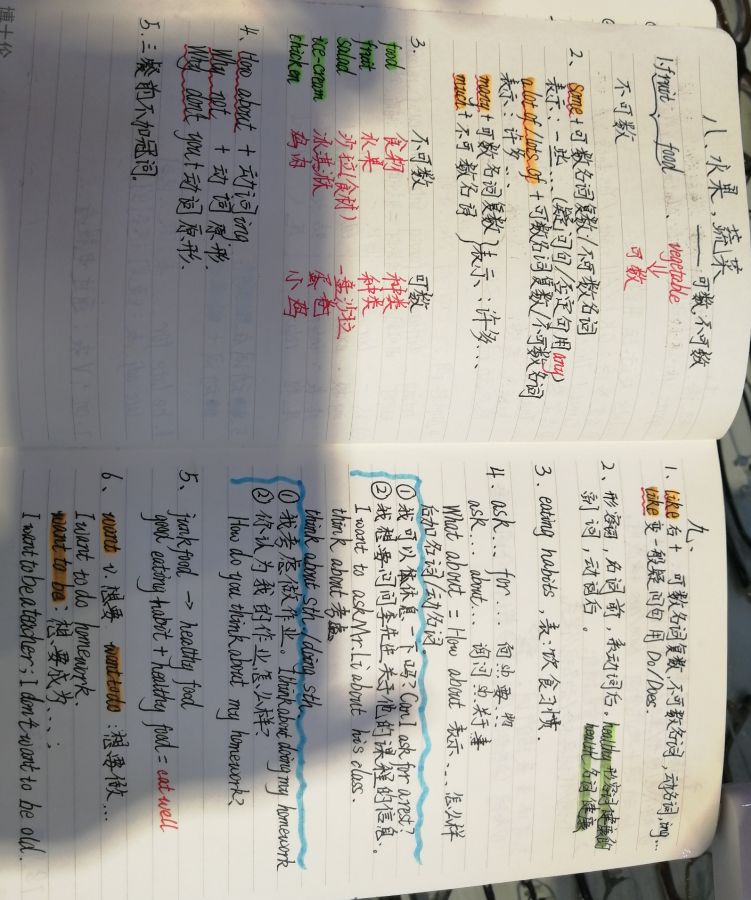 八、水果,蔬菜
可数,不可数
1.fruit、food、vegetable
不可数
可数
2、some+可数名词复数/不可数名词
表示:一些…(疑问句/否定句用any)
a lot of/lots of+可数名词复数/不可数名词
表示:许多…
many+可数名词复数
much+不可数名词
}表示:许多…
3、 不可数 可数
food 食物 种类
fruit 水果 种类
salad 沙拉(食材) 一盘沙拉
ice-cream 冰淇淋 蛋卷
chicken 鸡肉 小鸡
4、How about+动词ing
Why not+动词原形.
Why don't you+动词原形.
5.三餐前不加冠词.
博士伦
九、
1、like后+可数名词复数,不可数名词,动名词,ing…
like变一般疑问句用Do/Does.
2、形容词,名词前,系动词后。
副词,动词后。
healthy 形容词 健康的
health 名词 健康
3、eating habits,表:饮食习惯.
4、ask…for…向sb要sth
ask…about…询问sb关于事
What about=How about 表示…怎么样
后加名词/动名词.
① 我可以休息一下吗?Can I ask for a rest?
② 我想要问问李先生关于他的课程的信息。
I want to ask Mr.Li about his class.
think about 考虑
think about sth/doing sth
① 我考虑做作业。I think about doing my homework
② 你认为我的作业怎么样?
How do you think about my homework?
5、junk food → healthy food
good eating habit+healthy food=eat well
6、want v.想要 want to do:想要做…
I want to do homework.
want to be:想要成为…;
I want to be a tender; I don't want to be old.